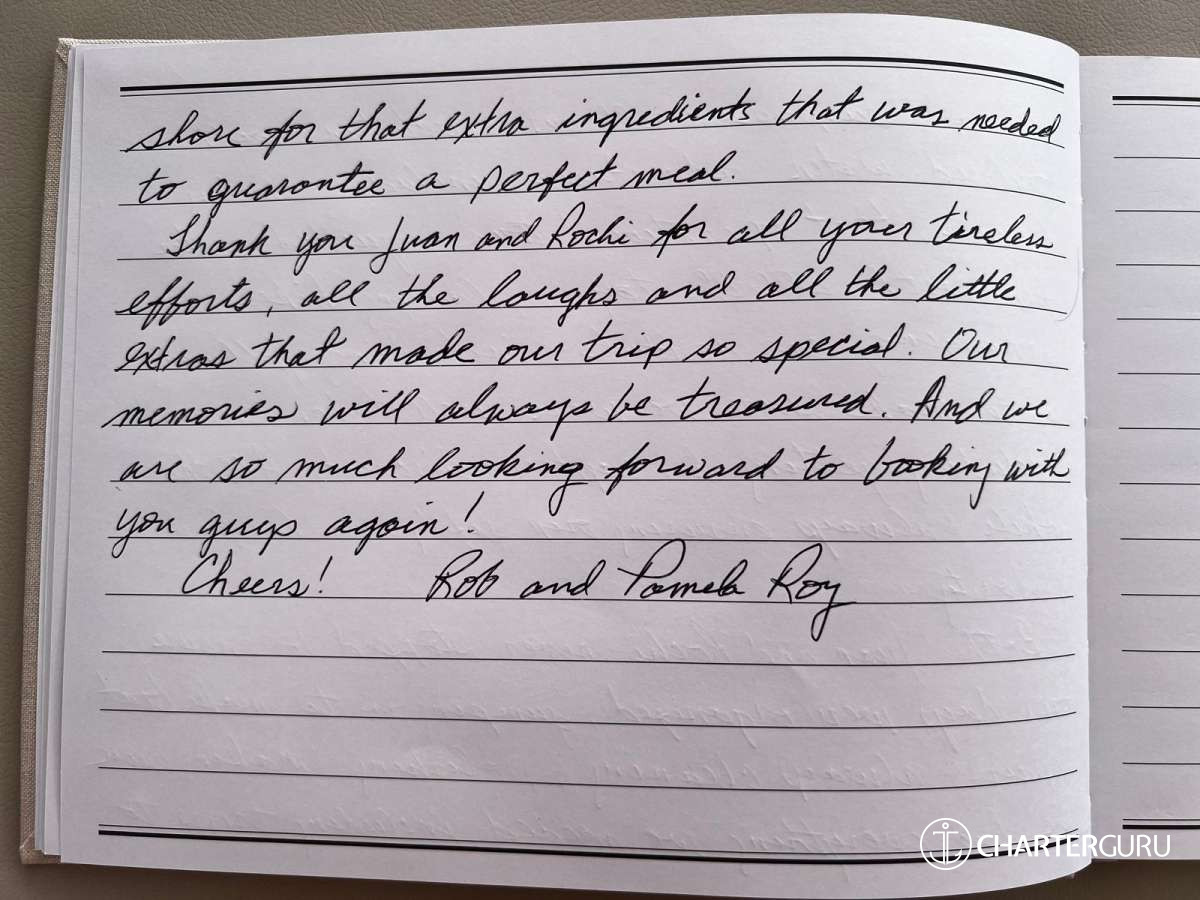 shore for that extra ingredients that was needed
to guarantee a perfect meal.
Thank you Juan and Rochi for all your tireless
efforts, all the laughs and all the little
extras that made our trip so special. Our
memories will always be treasured. And we
are so much looking forward to booking with
you guys again!
Cheers! Rob and Pamela Roy
CHARTERGURU